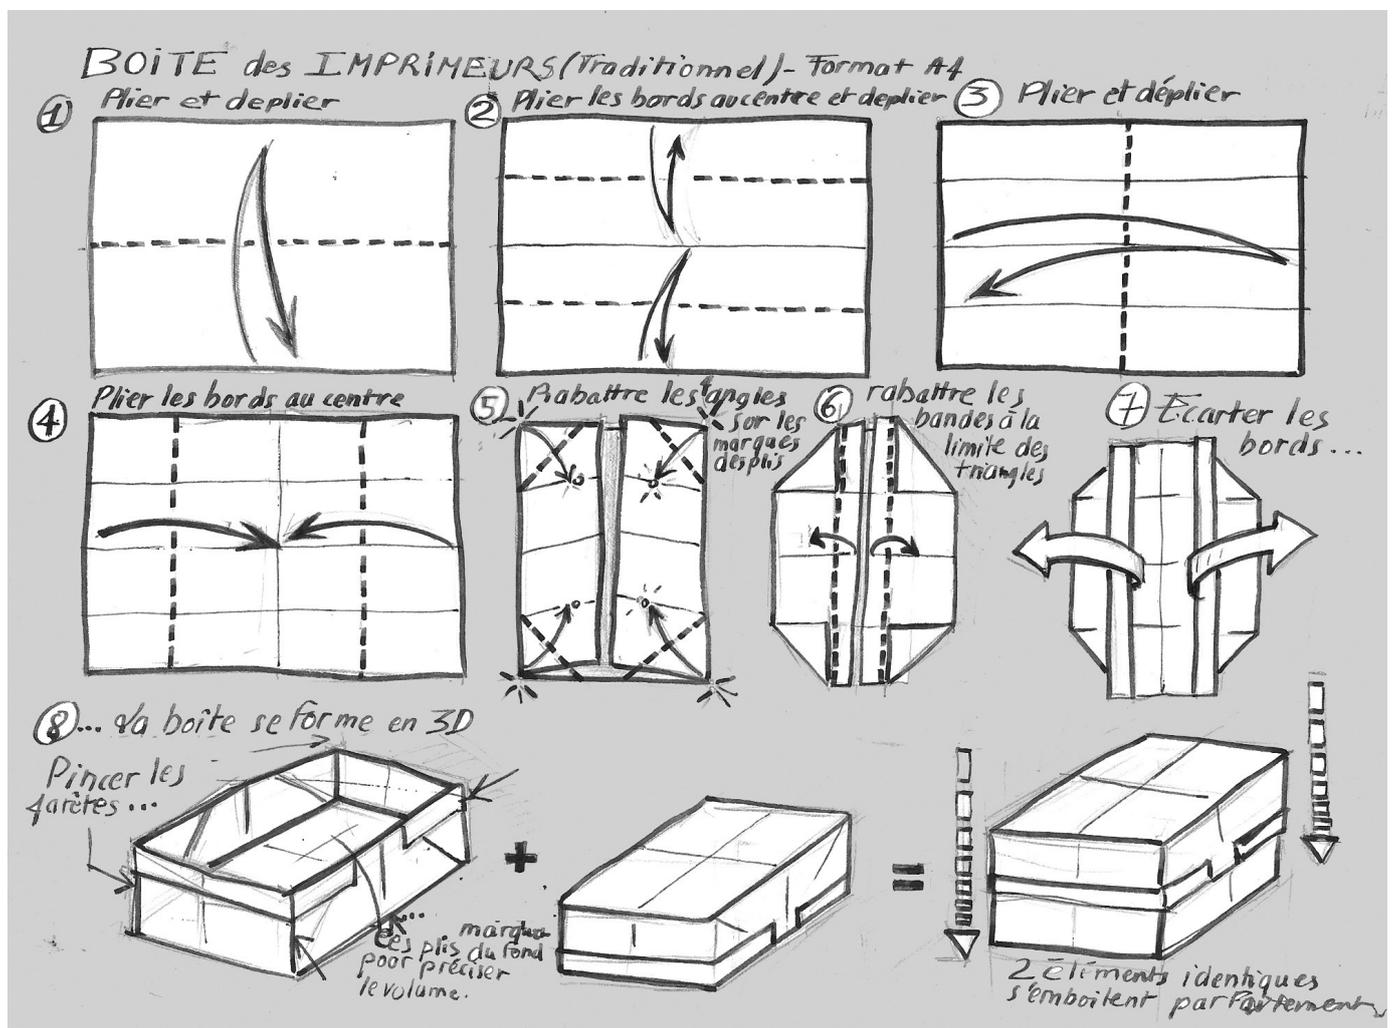 BOITE des IMPRIMEURS (Traditionnel) - Format A4
1 Plier et deplier
2 Plier les bords au centre et deplier
3 Plier et déplier
4 Plier les bords au centre
5 Rabattre les 4 angles
sur les
marques
des plis
6 rabattre les
bandes à la
limite des
triangles
7 Ecarter les
bords...
8... La boîte se forme en 3D
Pincer les
4 arêtes...
+
=
... marquer
les plis du fond
pour préciser
le volume.
2 éléments identiques
s'emboitent parfaitement